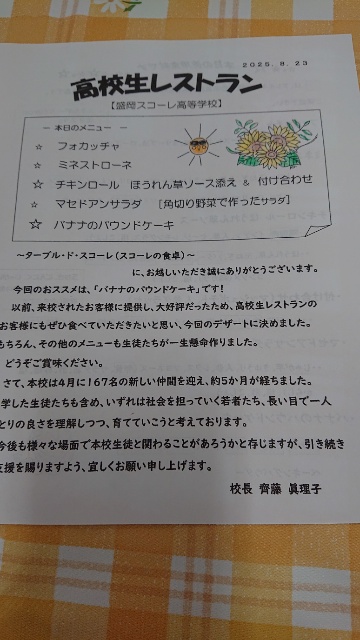 2025.8.23
高校生レストラン
【盛岡スコーレ高等学校】
－ 本日のメニュー －
☆ フォカッチャ
☆ ミネストローネ
☆ チキンロール ほうれん草ソース添え & 付け合わせ
☆ マセドアンサラダ [角切り野菜で作ったサラダ]
☆ バナナのパウンドケーキ
～ターブル・ド・スコーレ(スコーレの食卓)～
に、お越しいただき誠にありがとうございます。
今回のおススメは、「バナナのパウンドケーキ」です!
以前、来校されたお客様に提供し、大好評だったため、高校生レストランの
お客様にもぜひ食べていただきたいと思い、今回のデザートに決めました。
もちろん、その他のメニューも生徒たちが一生懸命作りました。
どうぞご賞味ください。
さて、本校は4月に167名の新しい仲間を迎え、約5か月が経ちました。
学した生徒たちも含め、いずれは社会を担っていく若者たち、長い目で一人
とりの良さを理解しつつ、育てていこうと考えております。
今後も様々な場面で本校生徒と関わることがあろうかと存じますが、引き続き
支援を賜りますよう、宜しくお願い申し上げます。
校長 齊藤 眞理子